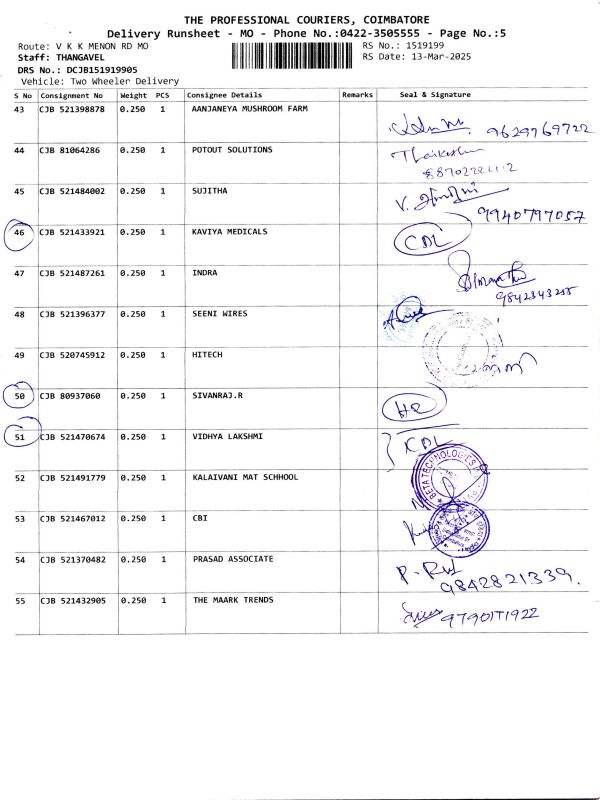 THE PROFESSIONAL COURIERS, COIMBATORE
Delivery Runsheet - MO - Phone No.:0422-3505555 - Page No.:5
Route: V K K MENON RD MO
RS No.: 1519199
Staff: THANGAVEL
RS Date: 13-Mar-2025
DRS No.: DCJB151919905
Vehicle: Two Wheeler Delivery
S No Consignment No Weight PCS Consignee Details Remarks Seal & Signature
43 CJB 521398878 0.250 1 AANJANEYA MUSHROOM FARM
9629769722
44 CJB 81064286 0.250 1 POTOUT SOLUTIONS
45 CJB 521484002 0.250 1 SUJITHA
9940797057
46 CJB 521433921 0.250 1 KAVIYA MEDICALS
CDL
47 CJB 521487261 0.250 1 INDRA
9842343255
48 CJB 521396377 0.250 1 SEENI WIRES
49 CJB 520745912 0.250 1 HITECH
50 CJB 80937060 0.250 1 SIVANRAJ.R
51 CJB 521470674 0.250 1 VIDHYA LAKSHMI
CDL
52 CJB 521491779 0.250 1 KALAIVANI MAT SCHHOOL
BETA TECHNOLOGIES
53 CJB 521467012 0.250 1 CBI
54 CJB 521370482 0.250 1 PRASAD ASSOCIATE
9842821339.
55 CJB 521432905 0.250 1 THE MAARK TRENDS